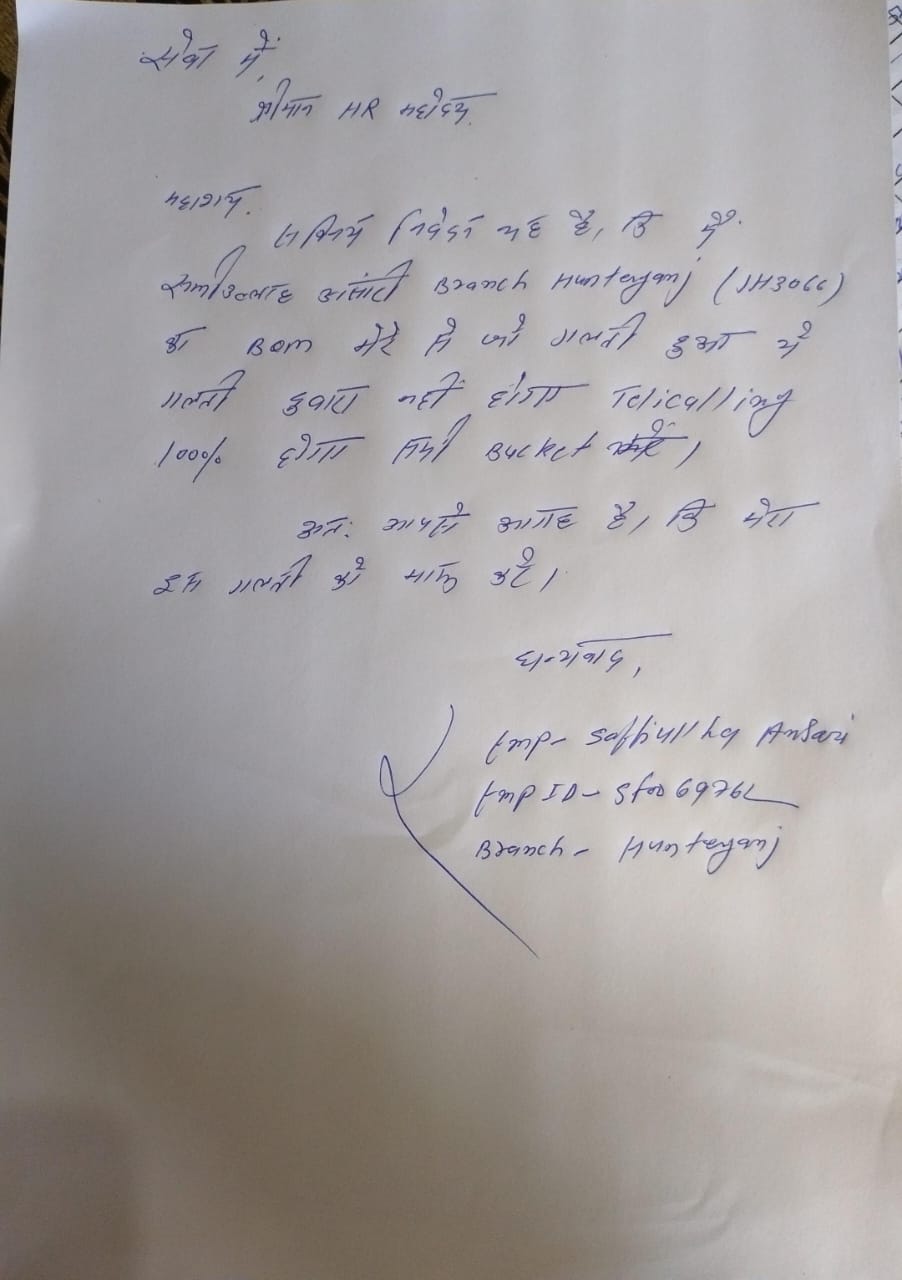 सेवा में,
श्रीमान HR महोदय.
महाशय.
सविनय निवेदन यह है, कि मैं.
सफीउल्लाह अंसारी Branch Hunterganj (JH3066)
का BOM मेरे से जो गलती हुआ ये
गलती दुबारा नहीं होगा Telicalling
100% होगा सभी Bucket
अतः आपसे आग्रह है, कि मेरा
इस गलती को माफ करें।
धन्यवाद,
Emp- Saffiullha Ansari
Emp ID- Sf0069762
Branch- Hunterganj